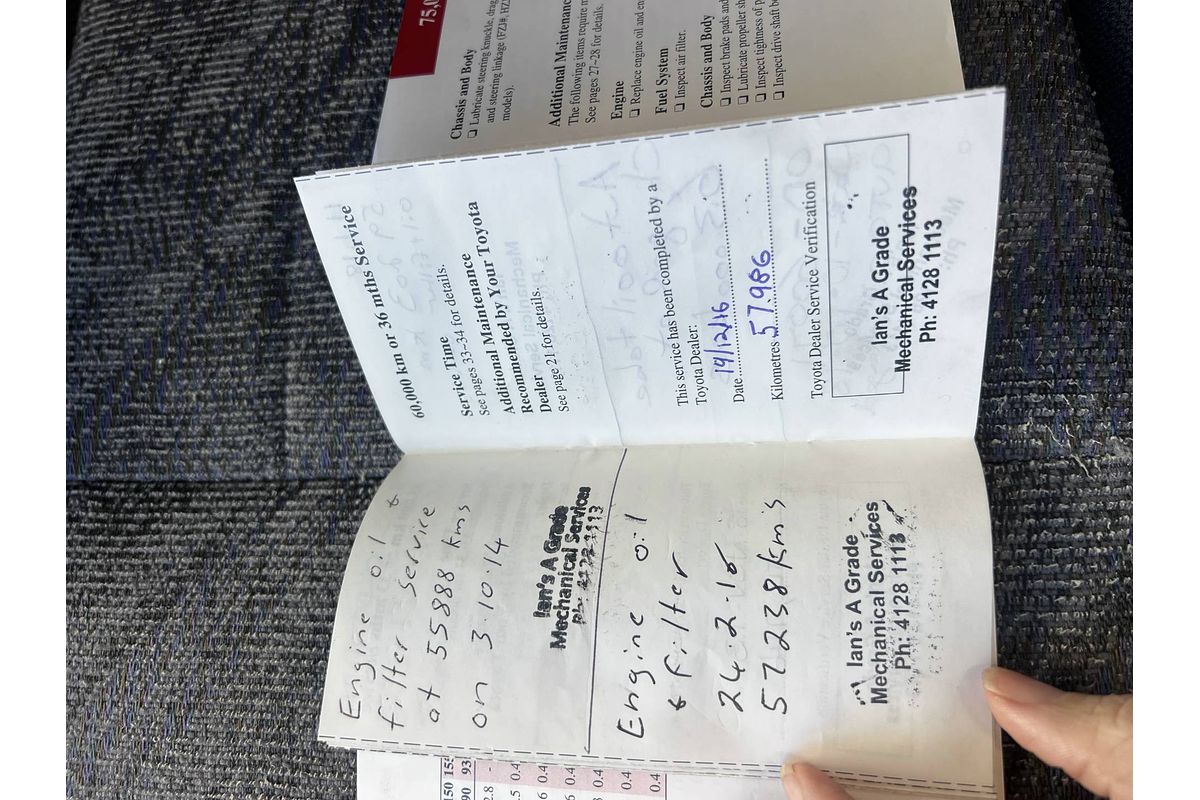 Engine oil &
filter service
at 55888 kms
on 3.10.14
Ian's A Grade
Mechanical Services
Ph: 4128 1113
Engine oil
& filter
24.2.15
57238 km's
Ian's A Grade
Mechanical Services
Ph: 4128 1113
60,000 km or 36 mths Service
Service Time
See pages 33–34 for details.
Additional Maintenance
Recommended by Your Toyota
Dealer
See page 21 for details.
This service has been completed by a
Toyota Dealer:
Date 14/12/16
Kilometres 57986
Toyota Dealer Service Verification
Ian's A Grade
Mechanical Services
Ph: 4128 1113
75,0
Chassis and Body
❑ Lubricate steering knuckle, drag
and steering linkage (FZJ#, HZJ
models).
Additional Maintenance
The following items require m
See pages 27–28 for details.
Engine
❑ Replace engine oil and en
Fuel System
❑ Inspect air filter.
Chassis and Body
❑ Inspect brake pads and
❑ Lubricate propeller sh
❑ Inspect tightness of p
❑ Inspect drive shaft b
150 155
90 93
2.8 -
.5 0.4
6 0.4
0.4
0.4
0.4
0.4